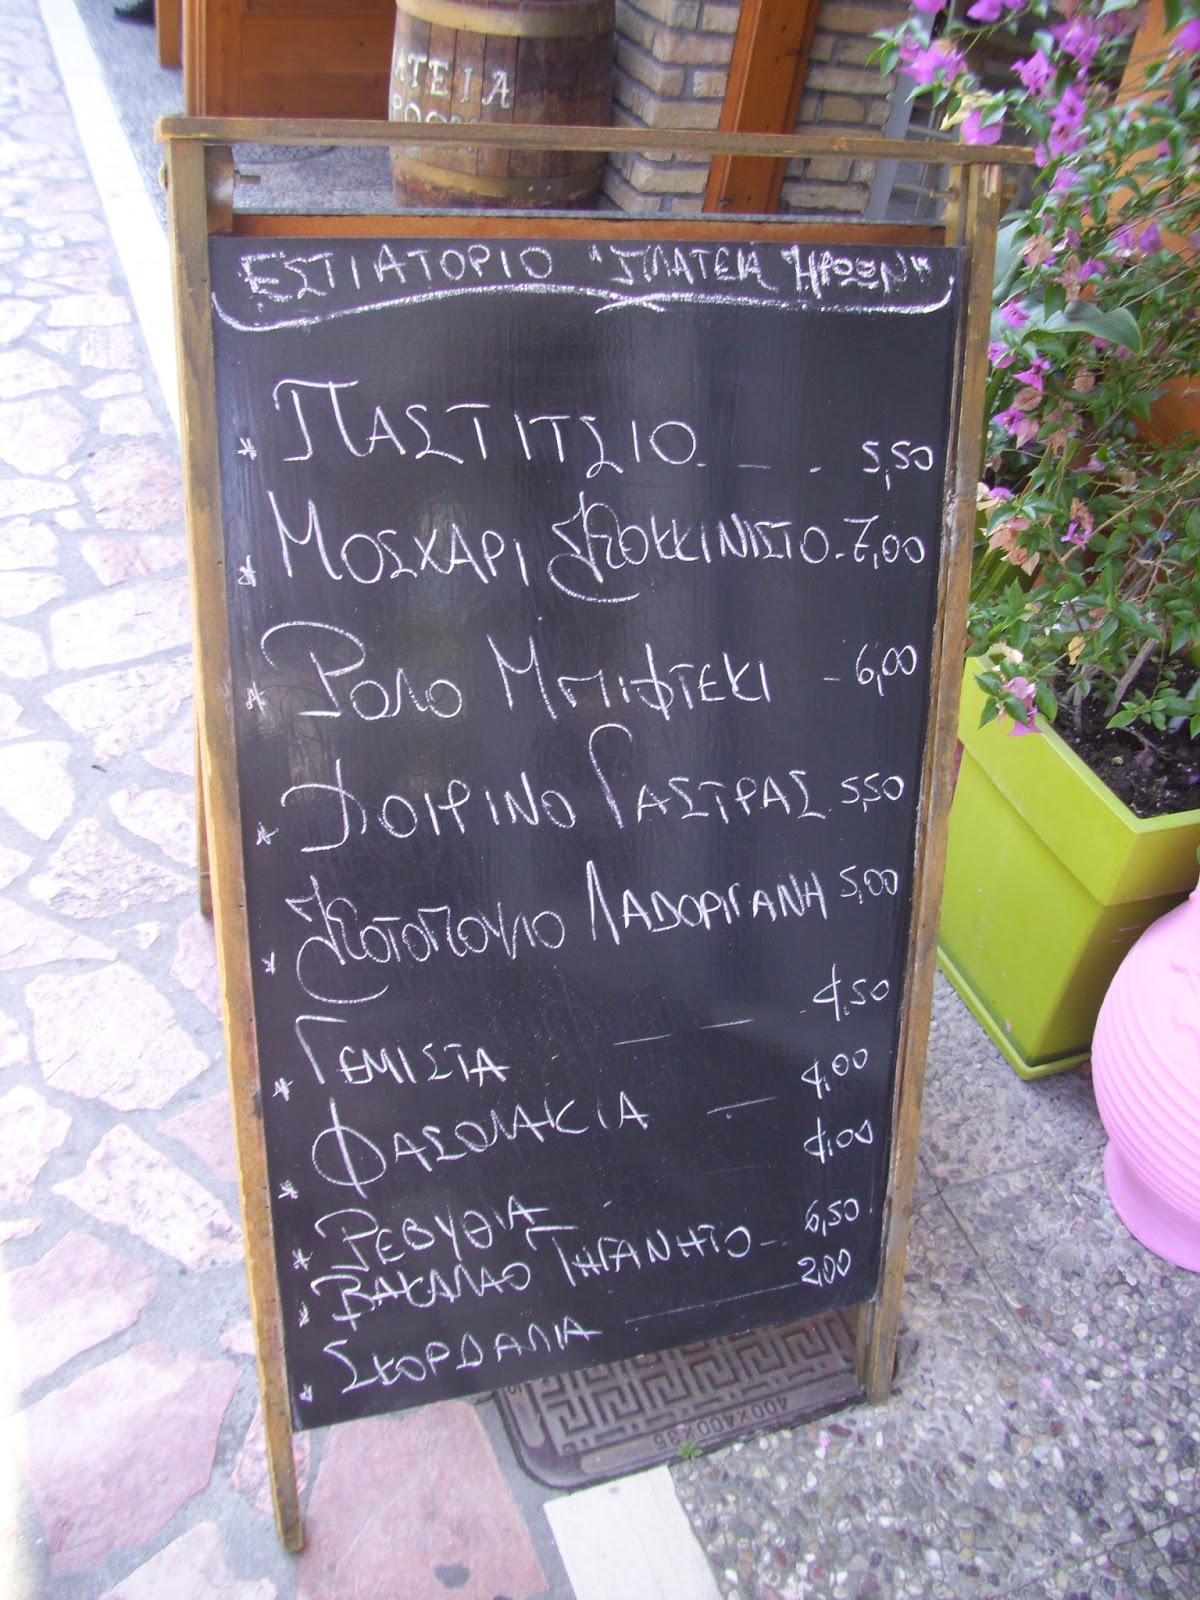 ΑΤΕΙΑ
ΕΣΤΙΑΤΟΡΙΟ "ΠΛΑΤΕΙΑ ΗΡΩΩΝ"
* ΠΑΣΤΙΤΣΙΟ - - - 5,50
* ΜΟΣΧΑΡΙ ΚΟΚΚΙΝΙΣΤΟ - 7,00
* ΡΟΛΟ ΜΠΙΦΤΕΚΙ - 6,00
* ΧΟΙΡΙΝΟ ΓΑΣΤΡΑΣ - 5,50
* ΚΟΤΟΠΟΥΛΟ ΛΑΔΟΡΙΓΑΝΗ 5,00
* ΓΕΜΙΣΤΑ - - - 4,50
* ΦΑΣΟΛΑΚΙΑ - 4,00
* ΡΕΒΥΘΙΑ - - 4,00
* ΒΑΚΑΛΑΟ ΤΗΓΑΝΗΤΟ - 6,50
* ΣΚΟΡΔΑΛΙΑ - 2,00
400X400X35